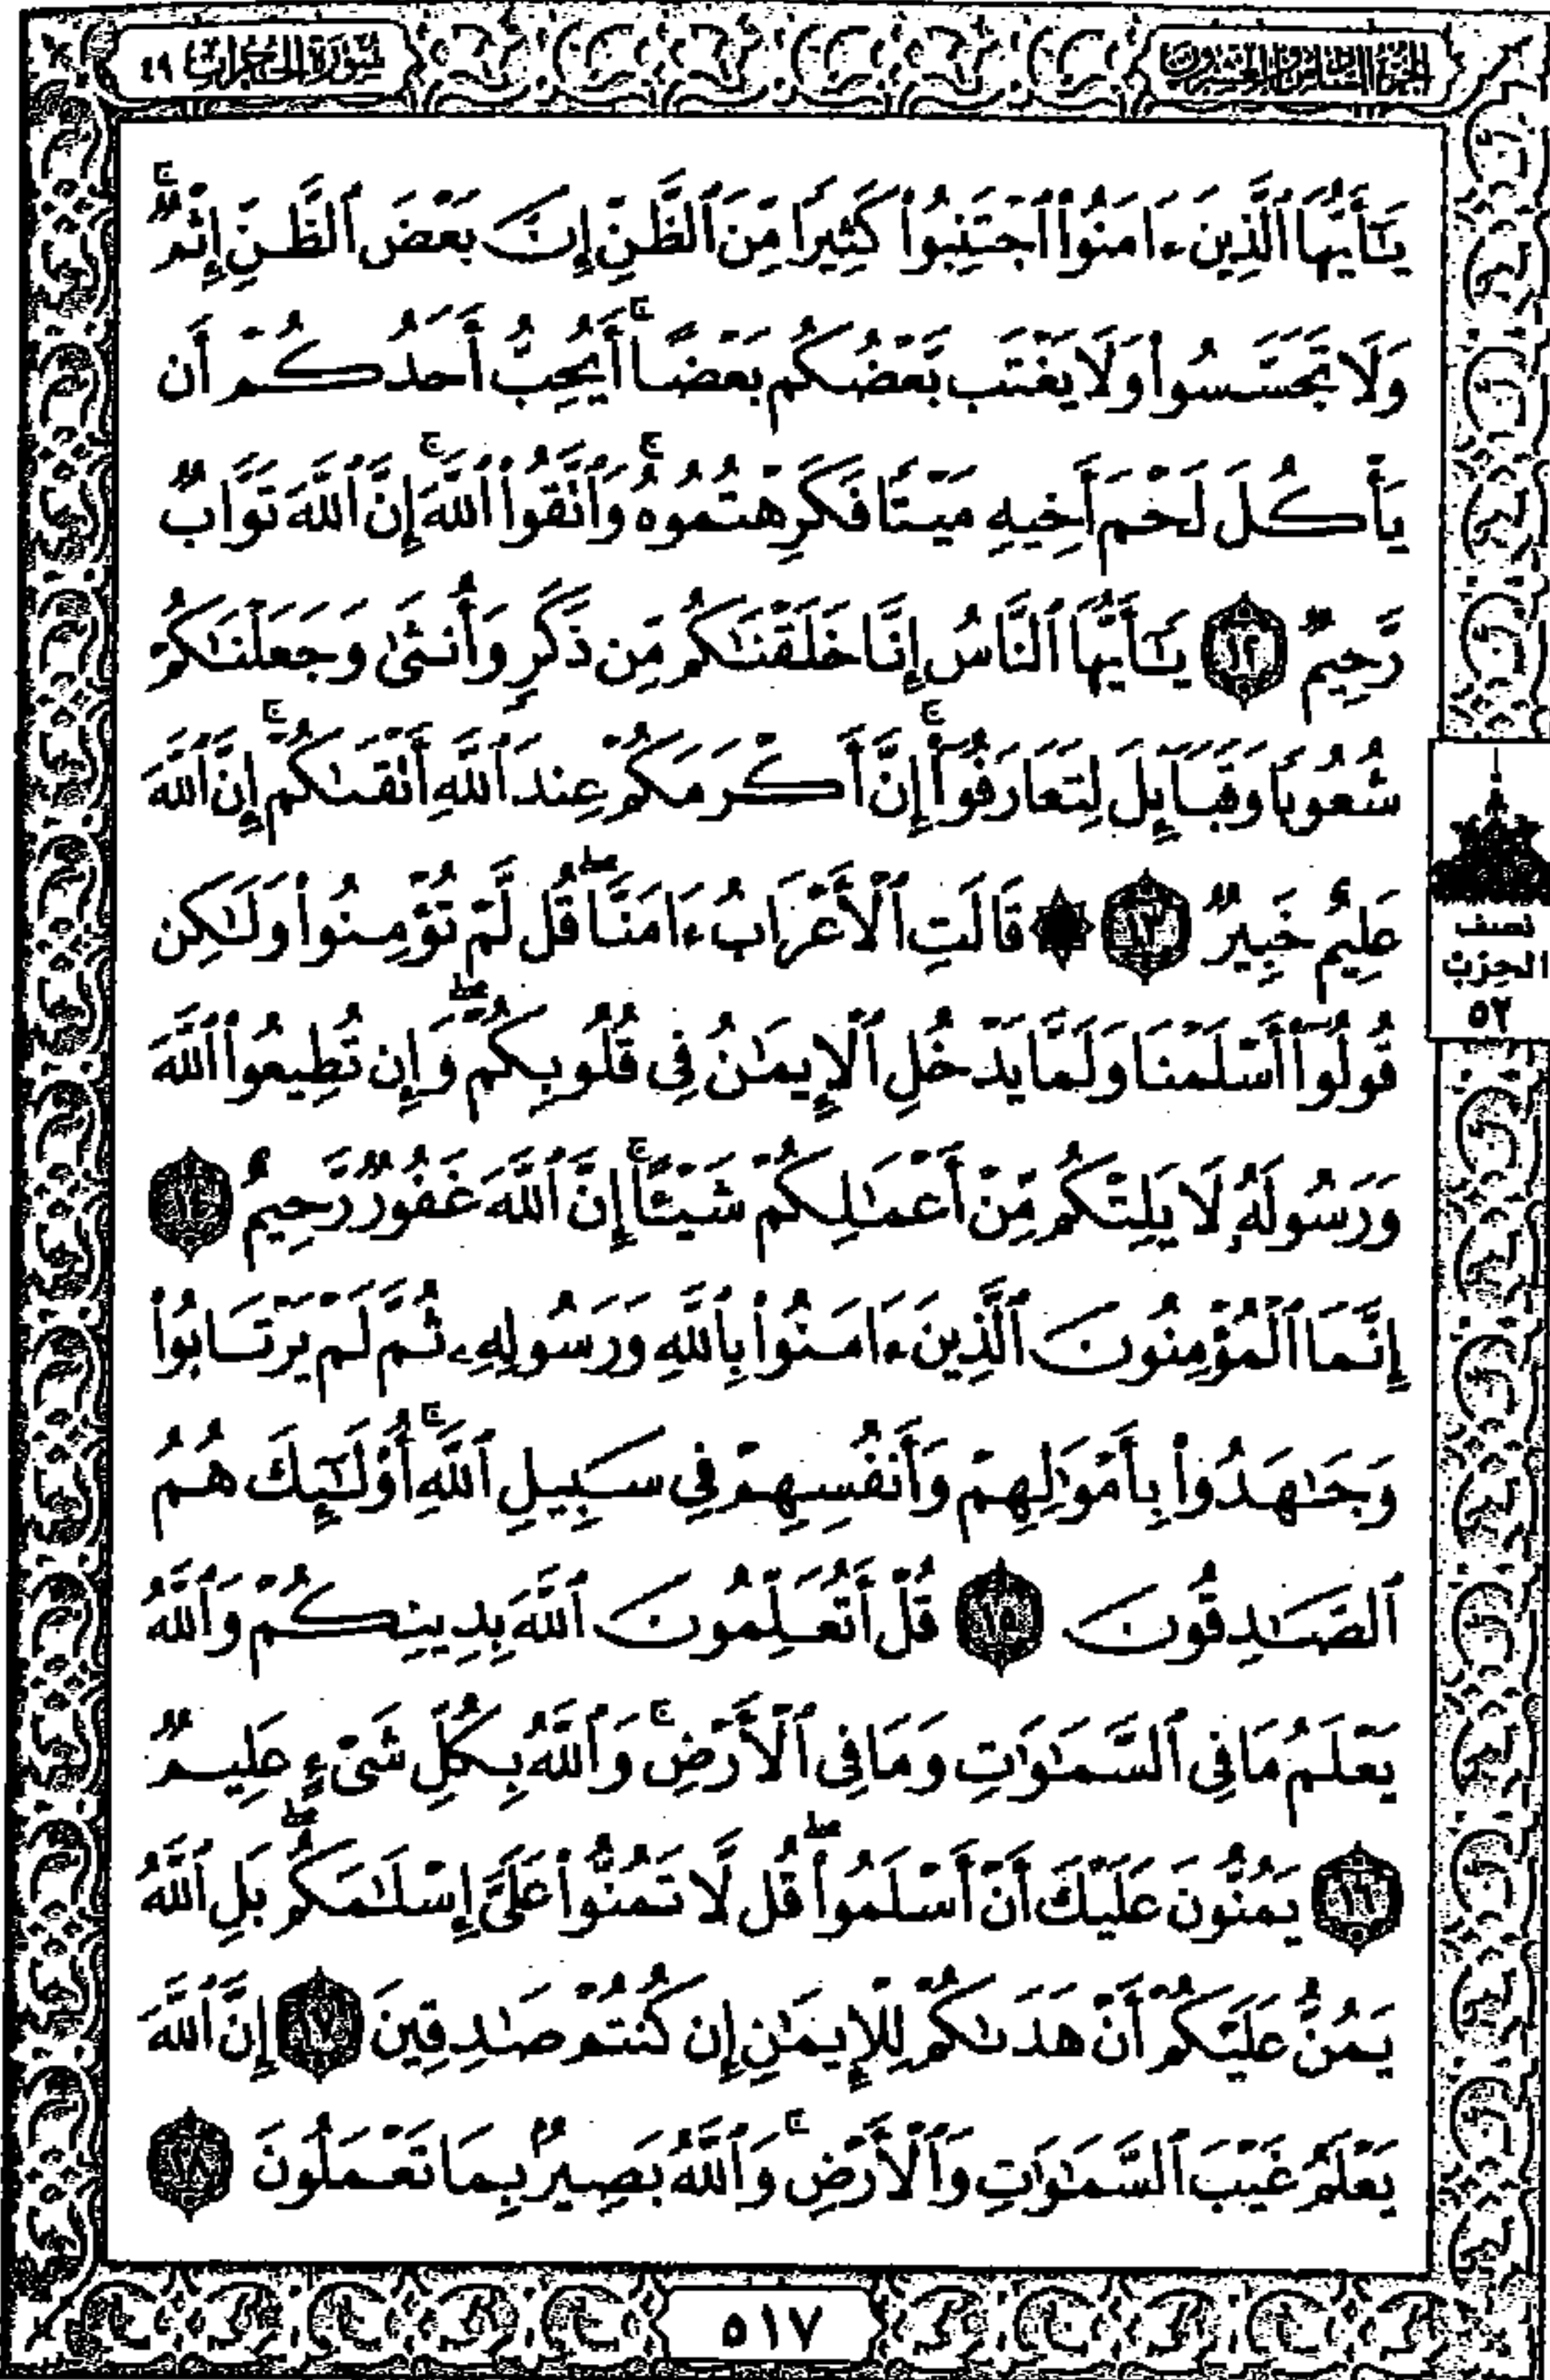 الجزء السادس والعشرون
سورة الحجرات ٤٩
يَٰٓأَيُّهَا ٱلَّذِينَ ءَامَنُوا۟ ٱجْتَنِبُوا۟ كَثِيرًا مِّنَ ٱلظَّنِّ إِنَّ بَعْضَ ٱلظَّنِّ إِثْمٌ ۖ
وَلَا تَجَسَّسُوا۟ وَلَا يَغْتَب بَّعْضُكُم بَعْضًا ۚ أَيُحِبُّ أَحَدُكُمْ أَن
يَأْكُلَ لَحْمَ أَخِيهِ مَيْتًا فَكَرِهْتُمُوهُ ۚ وَٱتَّقُوا۟ ٱللَّهَ ۚ إِنَّ ٱللَّهَ تَوَّابٌ
رَّحِيمٌ ١٢ يَٰٓأَيُّهَا ٱلنَّاسُ إِنَّا خَلَقْنَٰكُم مِّن ذَكَرٍ وَأُنثَىٰ وَجَعَلْنَٰكُمْ
شُعُوبًا وَقَبَآئِلَ لِتَعَارَفُوٓا۟ ۚ إِنَّ أَكْرَمَكُمْ عِندَ ٱللَّهِ أَتْقَىٰكُمْ ۚ إِنَّ ٱللَّهَ
عَلِيمٌ خَبِيرٌ ١٣ ۞ قَالَتِ ٱلْأَعْرَابُ ءَامَنَّا ۖ قُل لَّمْ تُؤْمِنُوا۟ وَلَٰكِن
قُولُوٓا۟ أَسْلَمْنَا وَلَمَّا يَدْخُلِ ٱلْإِيمَٰنُ فِى قُلُوبِكُمْ ۖ وَإِن تُطِيعُوا۟ ٱللَّهَ
وَرَسُولَهُۥ لَا يَلِتْكُم مِّنْ أَعْمَٰلِكُمْ شَيْـًٔا ۚ إِنَّ ٱللَّهَ غَفُورٌ رَّحِيمٌ ١٤
إِنَّمَا ٱلْمُؤْمِنُونَ ٱلَّذِينَ ءَامَنُوا۟ بِٱللَّهِ وَرَسُولِهِۦ ثُمَّ لَمْ يَرْتَابُوا۟
وَجَٰهَدُوا۟ بِأَمْوَٰلِهِمْ وَأَنفُسِهِمْ فِى سَبِيلِ ٱللَّهِ ۚ أُو۟لَٰٓئِكَ هُمُ
ٱلصَّٰدِقُونَ ١٥ قُلْ أَتُعَلِّمُونَ ٱللَّهَ بِدِينِكُمْ وَٱللَّهُ
يَعْلَمُ مَا فِى ٱلسَّمَٰوَٰتِ وَمَا فِى ٱلْأَرْضِ ۚ وَٱللَّهُ بِكُلِّ شَىْءٍ عَلِيمٌ
١٦ يَمُنُّونَ عَلَيْكَ أَنْ أَسْلَمُوا۟ ۖ قُل لَّا تَمُنُّوا۟ عَلَىَّ إِسْلَٰمَكُم ۖ بَلِ ٱللَّهُ
يَمُنُّ عَلَيْكُمْ أَنْ هَدَىٰكُمْ لِلْإِيمَٰنِ إِن كُنتُمْ صَٰدِقِينَ ١٧ إِنَّ ٱللَّهَ
يَعْلَمُ غَيْبَ ٱلسَّمَٰوَٰتِ وَٱلْأَرْضِ ۚ وَٱللَّهُ بَصِيرٌۢ بِمَا تَعْمَلُونَ ١٨
نصف
الحزب
٥٢
٥١٧